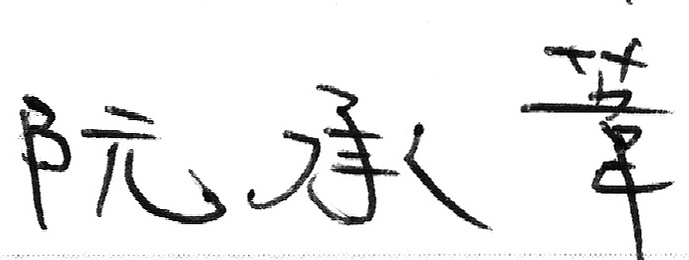 阮承葦